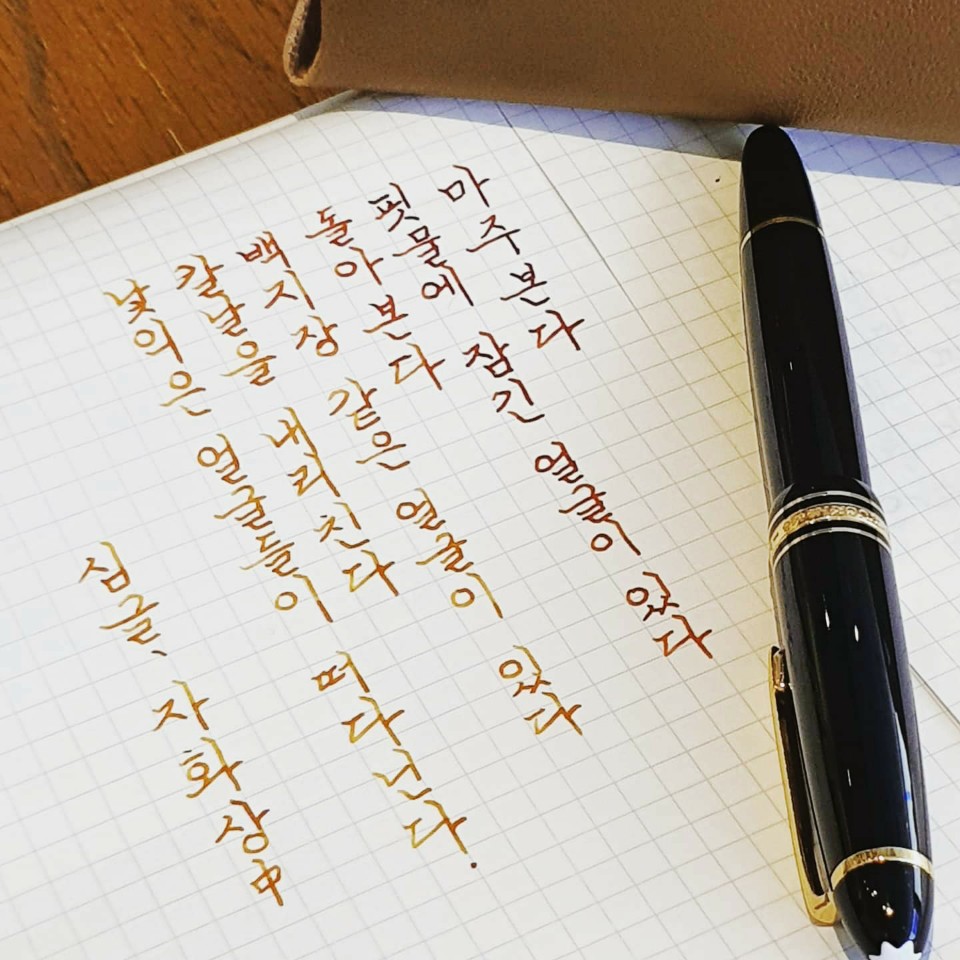 마주본다
핏물에 잠긴 얼굴이 있다
돌아본다
백지장 같은 얼굴이 있다
칼날을 내리친다
낯의은 얼굴들이 떠다닌다.
심글, 자화상中